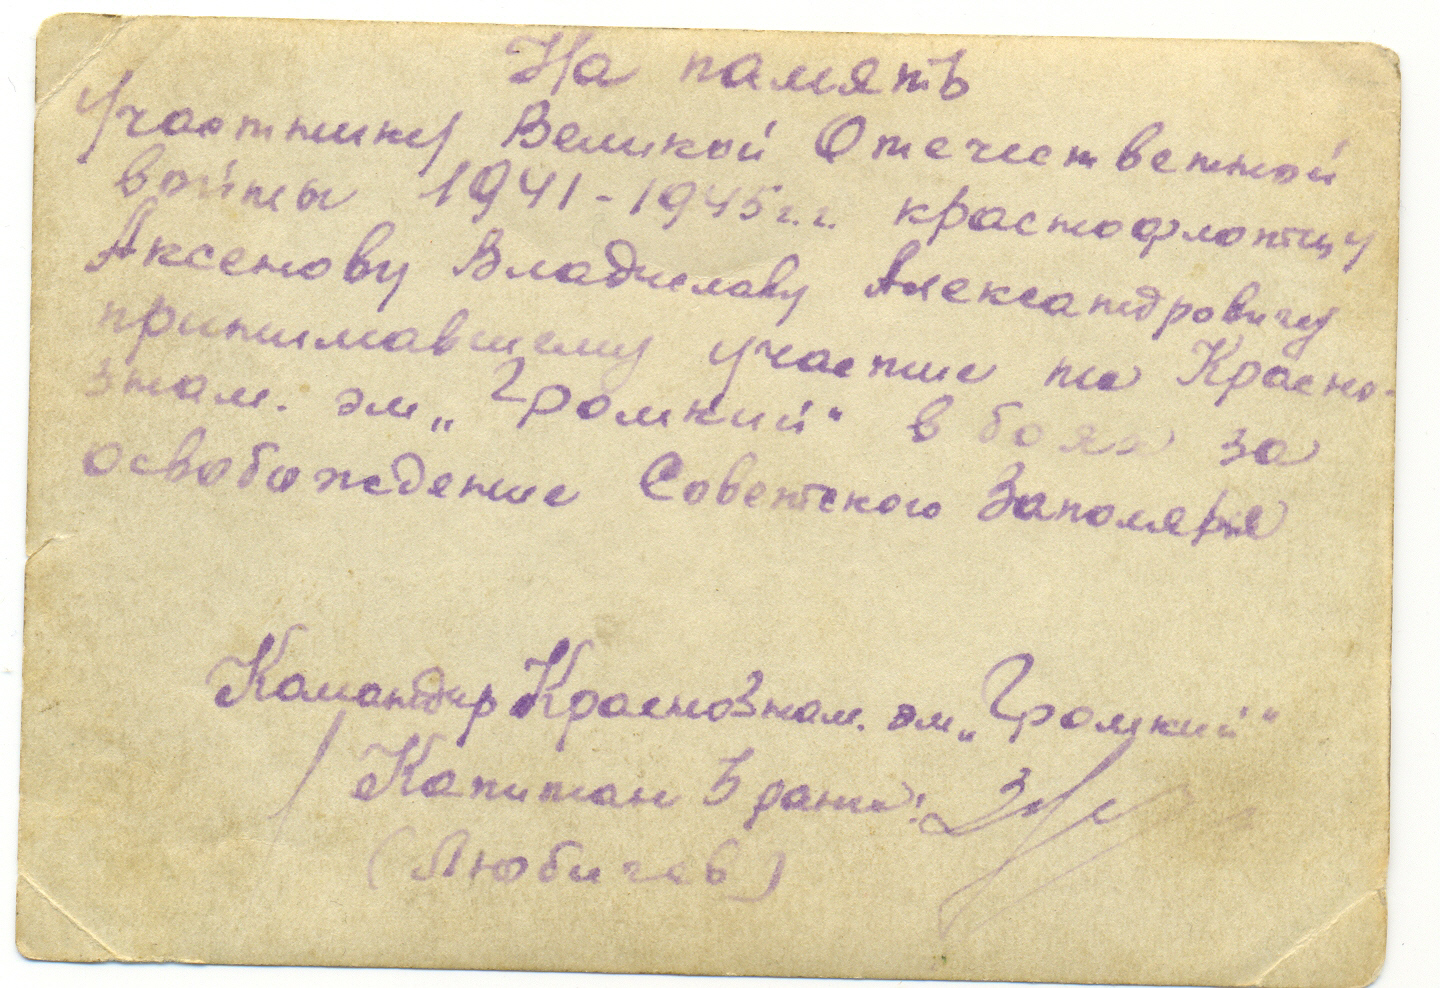 На память
Участнику Великой Отечественной
войны 1941-1945г.г. краснофлотцу
Аксенову Владиславу Александровичу
принимавшему участие на Красно-
знам. эм „Громкий“ в боях за
освобождение Советского Заполярья
Командир Краснознам. эм „Громкий“
Капитан 3 ранга:
(Любичев)